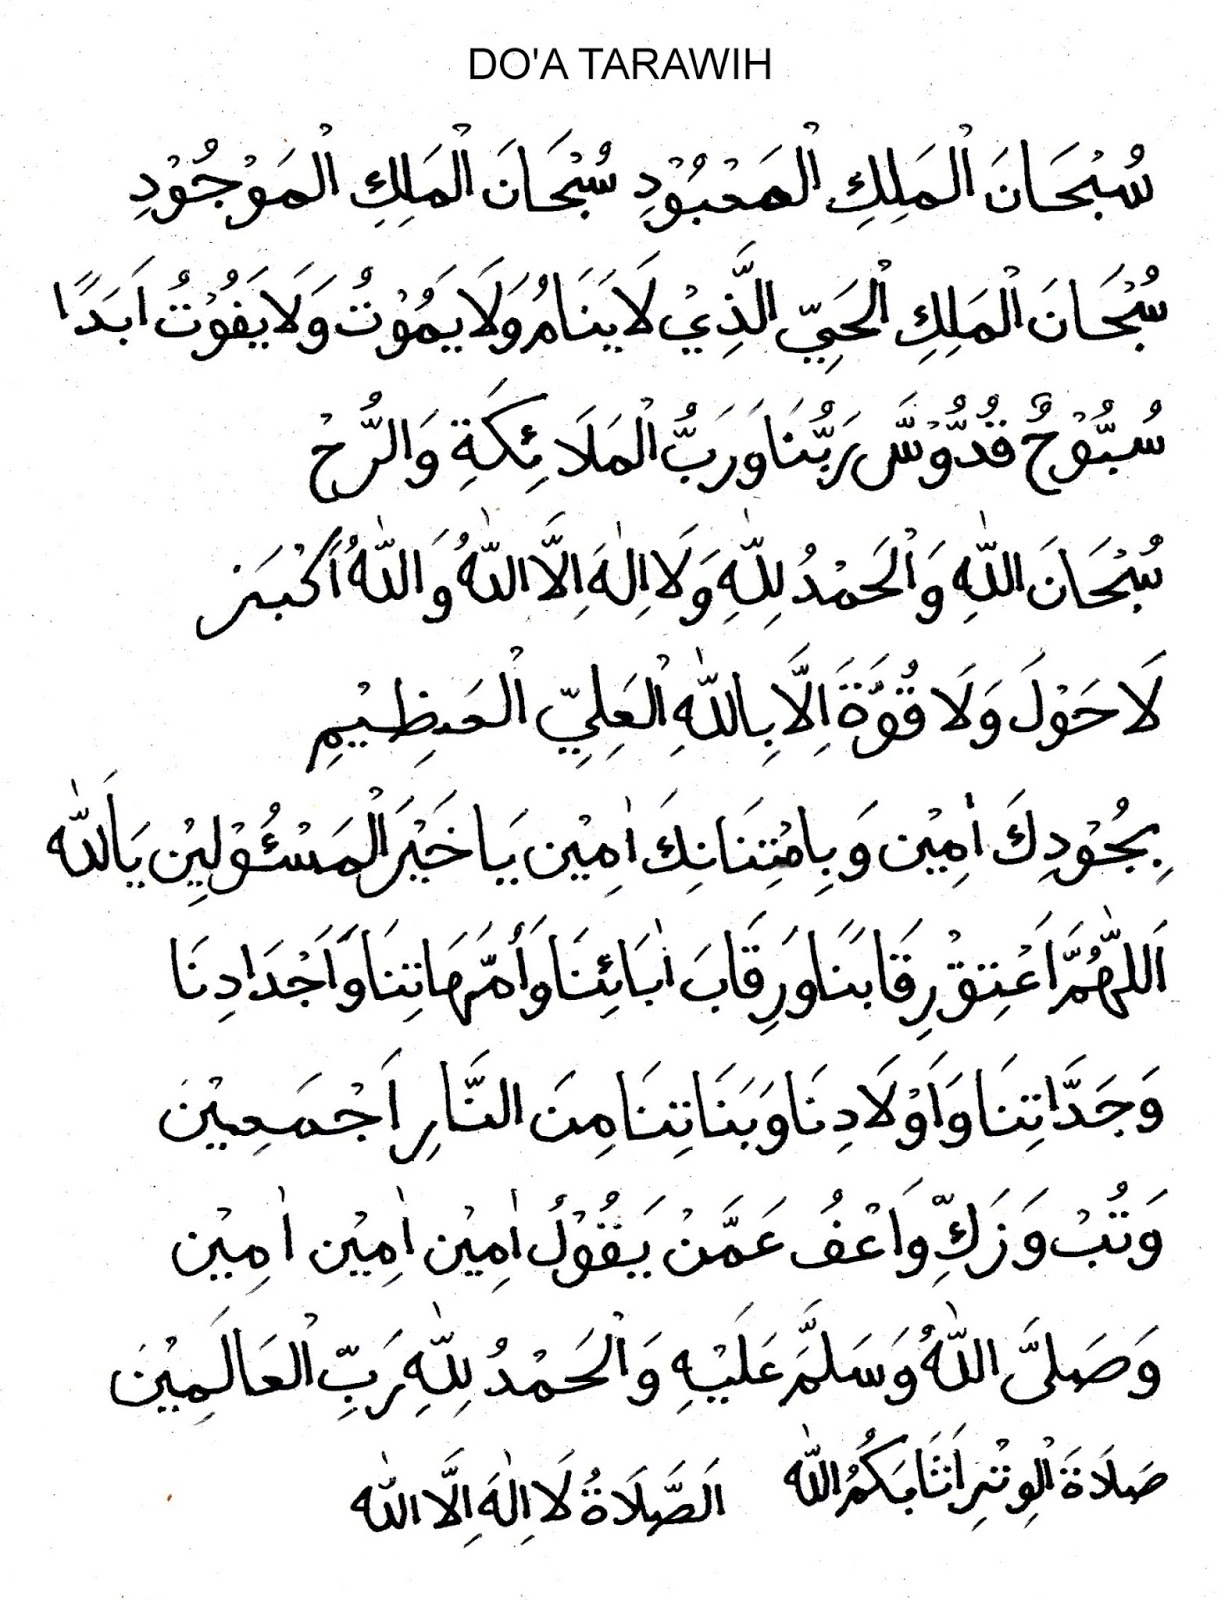 DO'A TARAWIH
سُبْحَانَ الْمَلِكِ الْمَعْبُوْدِ سُبْحَانَ الْمَلِكِ الْمَوْجُوْدِ
سُبْحَانَ الْمَلِكِ الْحَيِّ الَّذِيْ لَا يَنَامُ وَلَا يَمُوْتُ وَلَا يَفُوْتُ اَبَدًا
سُبُّوْحٌ قُدُّوْسٌ رَبُّنَا وَرَبُّ الْمَلَائِكَةِ وَالرُّحْ
سُبْحَانَ اللهِ وَالْحَمْدُ لِلّٰهِ وَلَا اِلٰهَ اِلَّا اللّٰهُ وَاللّٰهُ اَكْبَر
لَا حَوْلَ وَلَا قُوَّةَ اِلَّا بِاللّٰهِ الْعَلِيِّ الْعَظِيْمِ
بِجُوْدِكَ اٰمِيْن وَبِامْتِنَانِكَ اٰمِيْن يَا خَيْرَ الْمَسْئُوْلِيْن يَا اَللّٰه
اَللّٰهُمَّ اَعْتِقْ رِقَابَنَا وَرِقَابَ اٰبَائِنَا وَاُمَّهَاتِنَا وَاَجْدَادِنَا
وَجَدَّاتِنَا وَاَوْلَادِنَا وَبَنَاتِنَا مِنَ النَّارِ اَجْمَعِيْن
وَتُبْ وَزَكِّ وَاعْفُ عَمَّنْ يَقُوْلُ اٰمِيْن اٰمِيْن اٰمِيْن
وَصَلَّى اللّٰهُ وَسَلَّمَ عَلَيْهِ وَالْحَمْدُ لِلّٰهِ رَبِّ الْعَالَمِيْن
صَلَاةَ الْوِتْرِ اَثَابَكُمُ اللّٰه اَلصَّلَاةُ لَا اِلٰهَ اِلَّا اللّٰه